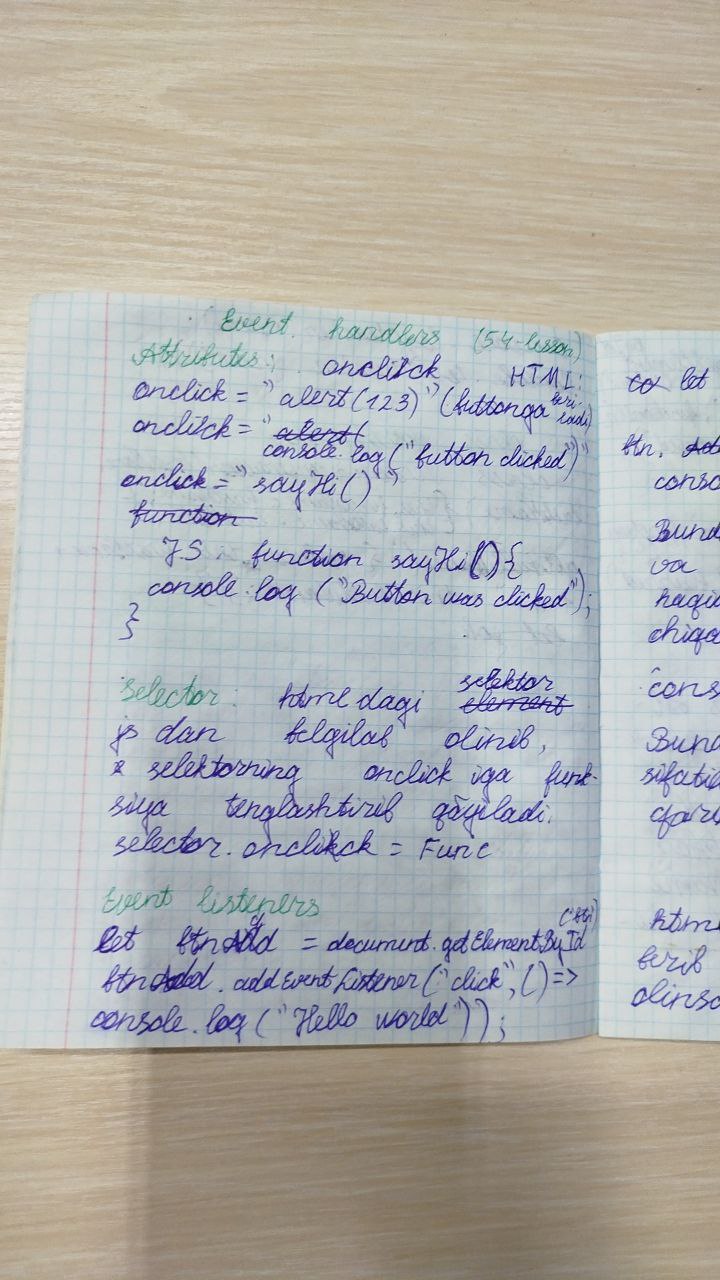 Event handlers (54-lesson)
Attributes: onclick HTML:
onclick = "alert(123)" (buttonga beriladi)
onclick = "alert(
console.log("button clicked)"
onclick = "sayHi()"
function
JS da function sayHi(){
console.log ("Button was clicked");
}
Selector: html dagi element selektor
js dan belgilab olinib,
selektorning onclick iga funk-
siya tenglashtirib qo'yiladi.
selector.onclick = Func
Event listeners
let btn = document.getElementById
btn.addEventListener("click", () =>
console.log("Hello world"));
let
btn.
conso
Bund
va
haqi
chiqa
cons
Bund
sifatid
html
berib
olinso